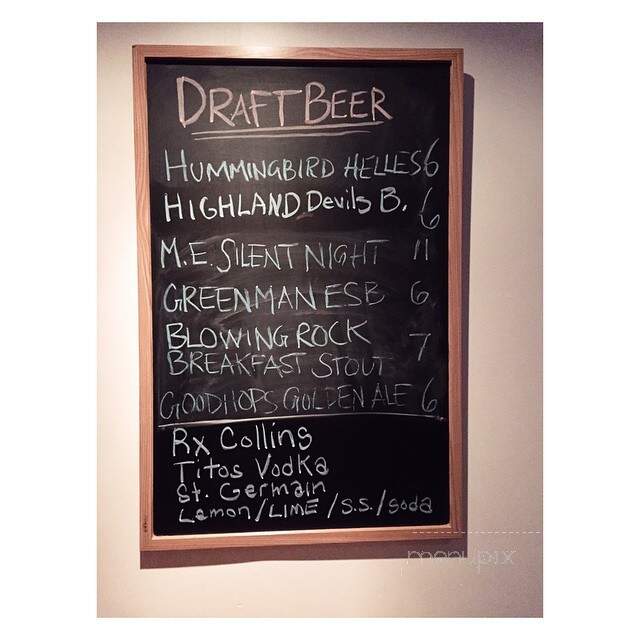 DRAFT BEER
HUMMINGBIRD HELLES 6
HIGHLAND Devils B. 6
M.E. SILENT NIGHT 11
GREENMAN ESB 6
BLOWING ROCK
BREAKFAST STOUT 7
GOODHOPS GOLDEN ALE 6
Rx Collins
Titos Vodka
St. Germain
Lemon/LIME/S.S./Soda
menupix